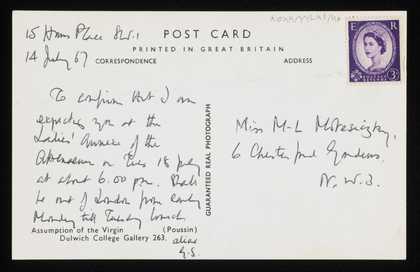 15 Hans Place SW.1
14 July 67
POST CARD
PRINTED IN GREAT BRITAIN
CORRESPONDENCE
ADDRESS
E R
3D
To confirm that I am
expecting you at the
Ladies' Annexe of the
Athenaeum on Tues 18 July
at about 6.00 pm. Shall
be out of London from early
Monday till Tuesday lunch
alias
G.S.
Assumption of the Virgin (Poussin)
Dulwich College Gallery 263.
GUARANTEED REAL PHOTOGRAPH
Miss M-L
6 Chesterford Gardens.
N.W.3.